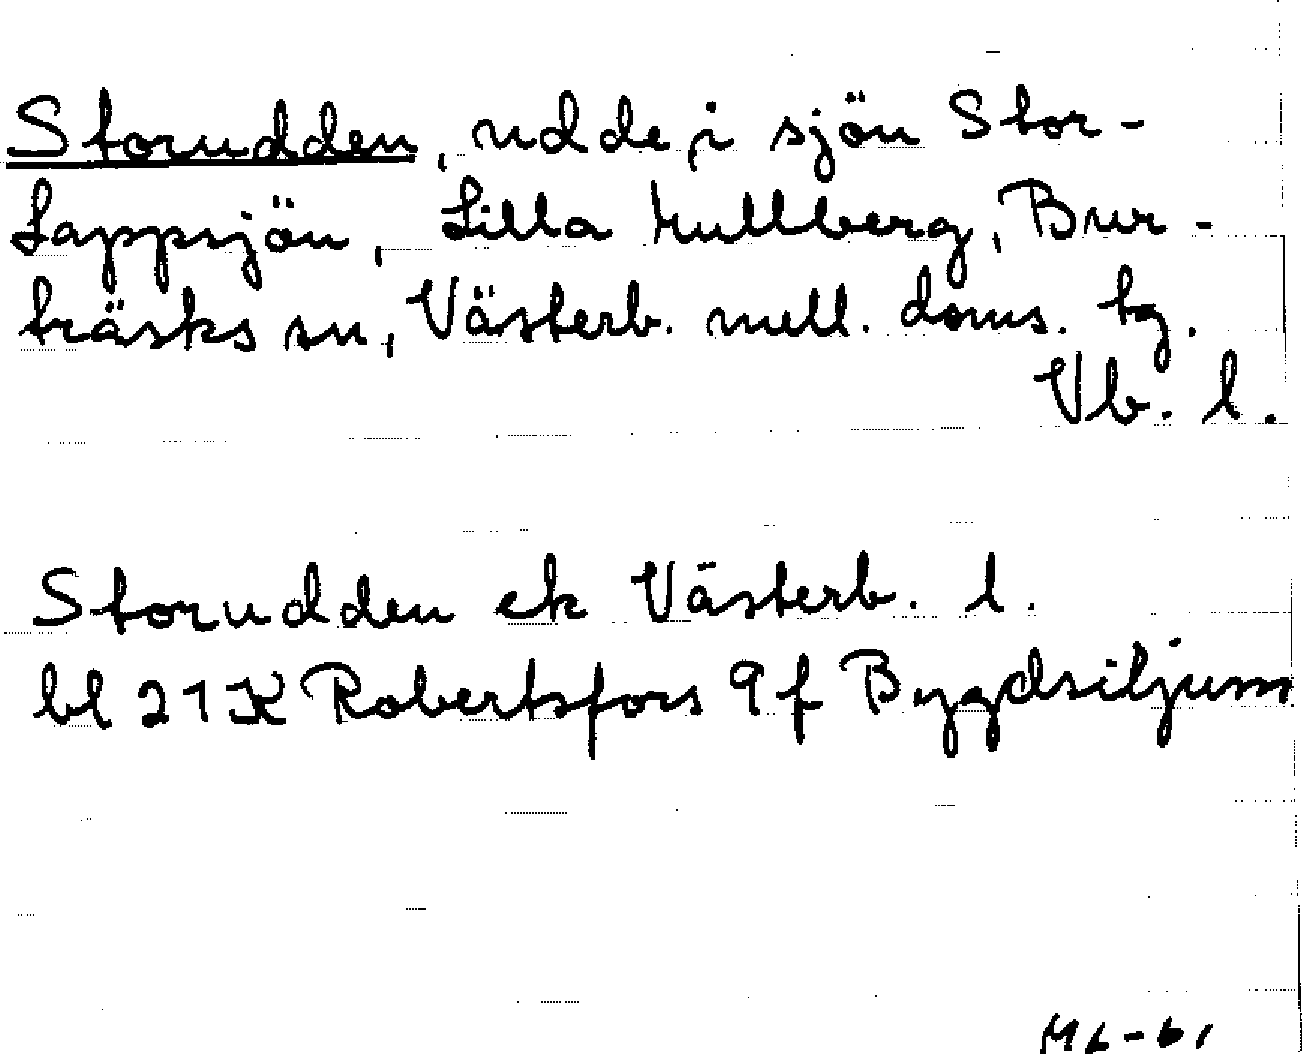 Storudden, udde, i sjön Stor-
Lappsjön, Lilla Kullberg, Bur-
träsks sn, Västerb. mell. doms. tg.
Vb. l.
Storudden ek Västerb. l.
bl 21K Robertsfors 9f Bygdsiljum